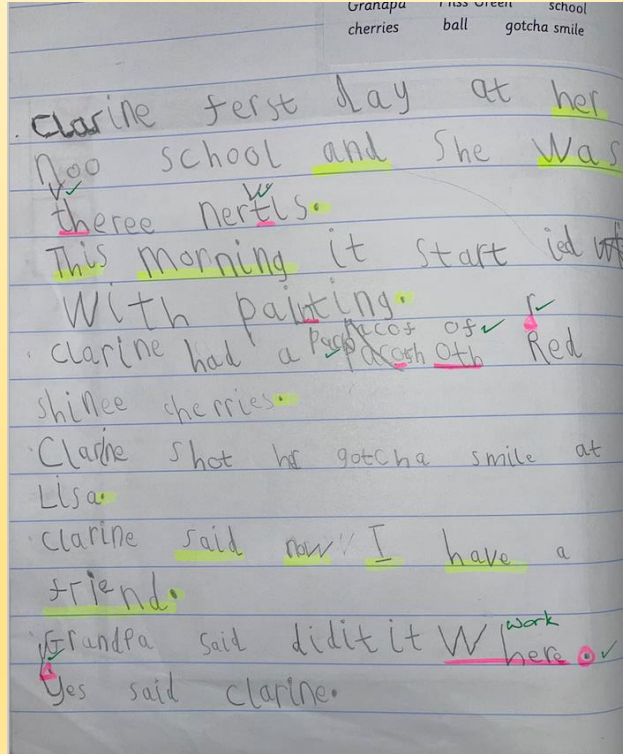 Grandpa Miss Green school
cherries ball gotcha smile
Clarine ferst day at her
noo school and She was
theree nertls.
This morning it start ied
With painting.
clarine had a of Red
shinee cherries.
Clarine shot her gotcha smile at
Lisa.
clarine said now I have a
friend.
Grandpa said didit it W here work
Yes said clarine.